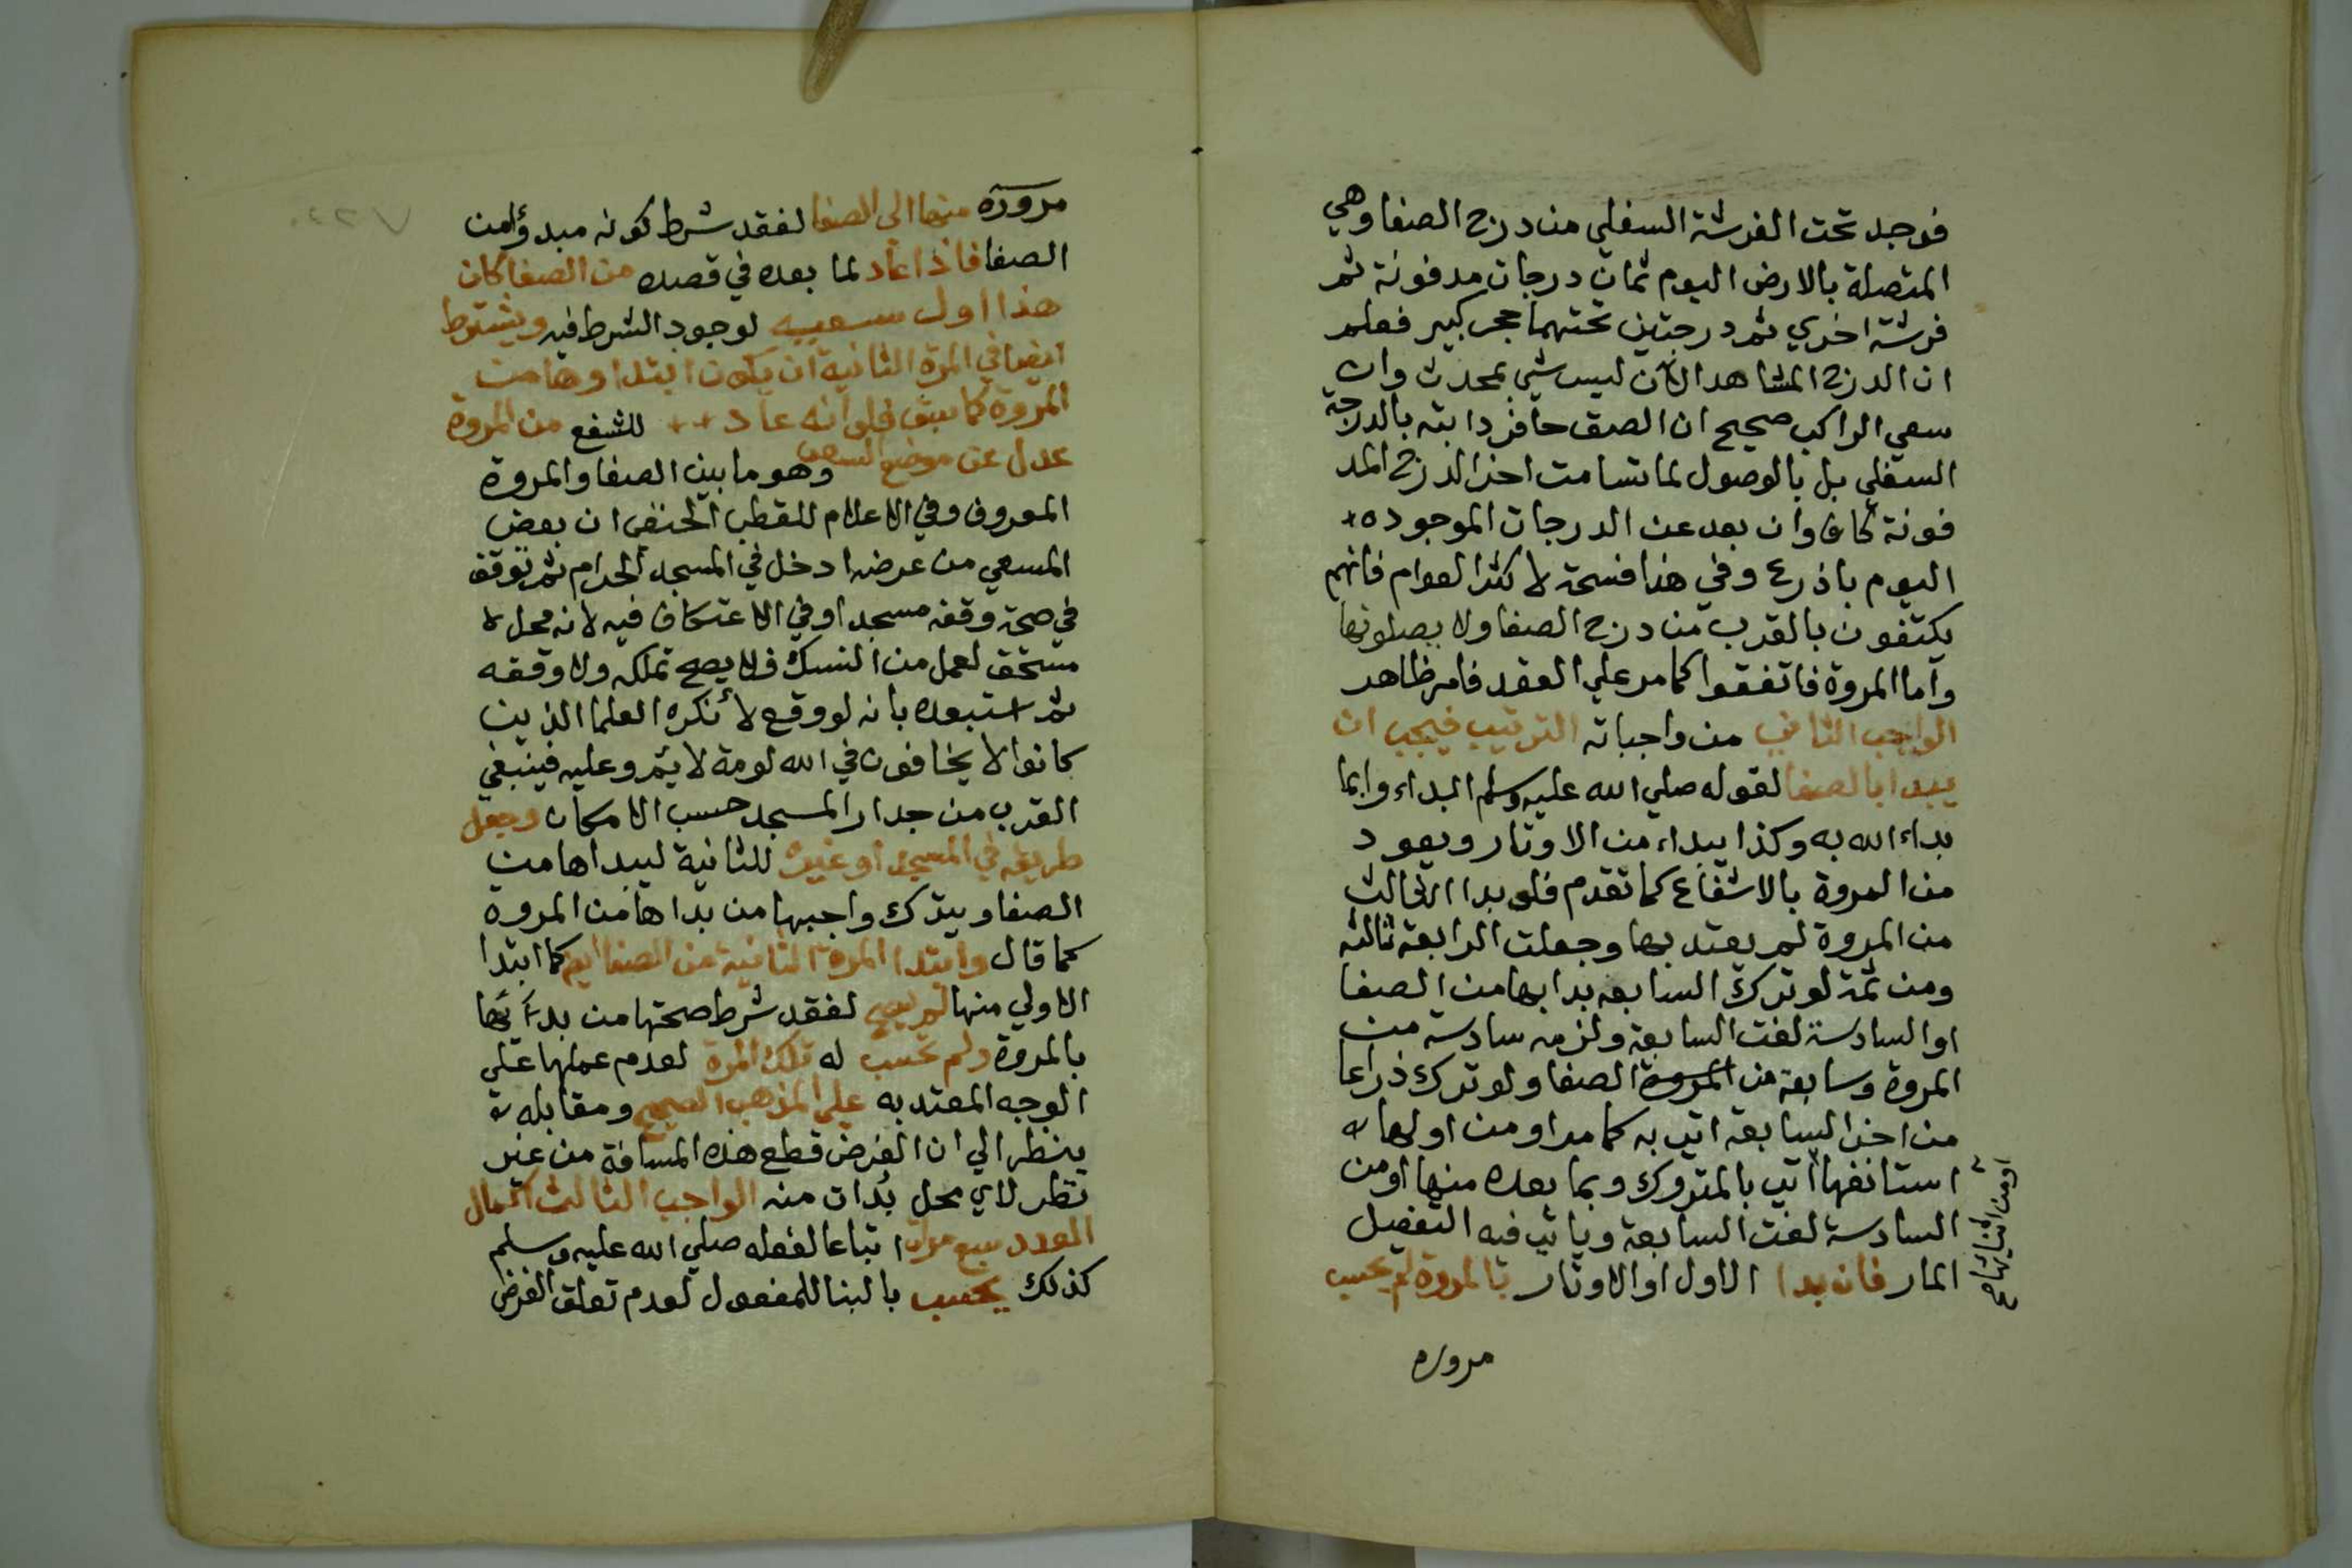 فوجد تحت الفرشة السفلي من درج الصفا وهي
المتصلة بالارض اليوم ثمان درجات مدفونة ثم
فرشة اخري ثم درجتين تحتهما حجر كبير فعلم
ان الدرج المشاهد الآن ليس شي بمحدث وان
سعي الراكب صحيح ان الصق حافر دابته بالدرجة
السفلي بل بالوصول لما تسامت اخر الدرج المد
فونة كاف وان بعد عن الدرجات الموجوده
اليوم باذرع وفي هذا فسحة لاكثر العوام فانهم
يكتفون بالقرب من درج الصفا ولا يصلونها
وأما المروة فاتفقوا كما مر علي العقد فامر ظاهر
الواجب الثاني من واجباته الترتيب فيجب ان
يبدا بالصفا لقوله صلي الله عليه وسلم ابداء وابما
بداء الله به وكذا يبداء من الاوتار ويعود
من المروة بالاشفاع كما تقدم فلو بدا الثالث
من المروة لم يعتد بها وجعلت الرابعة ثالثه
ومن ثمة لو ترك السابعه بدا بها من الصفا
او السادسة لغت السابعة ولزمه سادسة من
المروة وسابعة من المروة الصفا ولو ترك ذراعا
من اخر السابعة اتي به كما مر او من اولها
استانفها اتي بالمتروك وبما بعده منها او من
السادسة لغت السابعة وياتي فيه التفصيل
المار فان بدا الاول او الاوتار بالمروة لم يحسب
او من اثنائها
مروره
مروره منها الي الصفا لفقد شرط كونه مبدؤا من
الصفا فاذا عاد لما بعده في قصده من الصفا كان
هذا اول سعيه لوجود الشرط فيه ويشترط
ايضا في المرة الثانية ان يكون ابتداوها من
المروة كما سبق فلو انه عاد للشفع من المروة
عدل عن موضع السعي وهو ما بين الصفا والمروة
المعروف وفي الاعلام للقطب الحنفي ان بعض
المسعي من عرضه ادخل في المسجد الحرام ثم توقف
في صحة وقفه مسجد او في الاعتكاف فيه لانه محل
مستحق لعمل من النسك فلا يصح تملكه ولا وقفه
ثم استبعده بانه لو وقع لأنكره العلما الذين
كانوا لا يخافون في الله لومة لايم وعليه فينبغي
القرب من جدار المسجد حسب الامكان وجعل
طريقه في المسجد او غيره للثانية ليبداها من
الصفا ويترك واجبها من بداها من المروة
كما قال وابتدا المرة الثانية من الصفا ايضا كما ابتدا
الاولي منها لم يصح لفقد شرط صحتها من بدآئها
بالمروة ولم تحسب له تلك المرة لعدم عملها علي
الوجه المعتد به علي المذهب الصحيح ومقابله
ينظر الي ان الفرض قطع هذه المسافة من غير
نظر لاي محل بدات منه الواجب الثالث اكمال
العدد سبع مرات اتباعا لفعله صلي الله عليه وسلم
كذلك يحسب بالبنا للمفعول لعدم تعلق الفرض